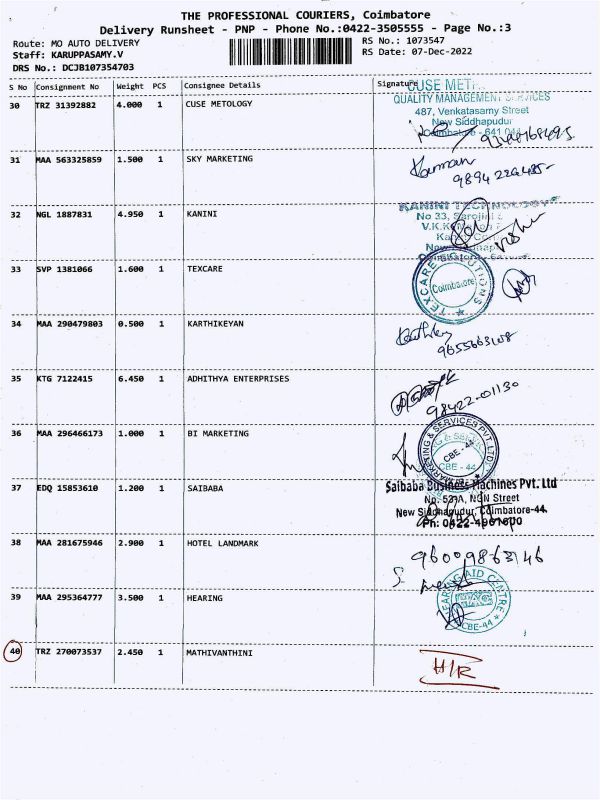 THE PROFESSIONAL COURIERS, Coimbatore
Delivery Runsheet - PNP - Phone No.:0422-3505555 - Page No.:3
Route: MO AUTO DELIVERY
RS No.: 1073547
Staff: KARUPPASAMY.V
RS Date: 07-Dec-2022
DRS No.: DCJB107354703
S No Consignment No Weight PCS Consignee Details Signature
CUSE MET
QUALITY MANAGEMENT SERVICES
30 TRZ 31392882 4.000 1 CUSE METOLOGY
487, Venkatasamy Street
New Siddhapudur
Coimbatore - 641 044
31 MAA 563325859 1.500 1 SKY MARKETING
9894 226485
32 NGL 1887831 4.950 1 KANINI
KANINI TECHNOLOGY
No 33, Sarojini
V.K.K
33 SVP 1381066 1.600 1 TEXCARE
TEXCARE SOLUTIONS
Coimbatore
34 MAA 290479803 0.500 1 KARTHIKEYAN
Karthikey
9655663108
35 KTG 7122415 6.450 1 ADHITHYA ENTERPRISES
98422-01130
36 MAA 296466173 1.000 1 BI MARKETING
MARKETING & SERVICES PVT. LTD
CBE - 44
CBE - 44
37 EDQ 15853610 1.200 1 SAIBABA
Saibaba Business Machines Pvt. Ltd
No. 53-A, NGN Street
New Siddhapudur, Coimbatore-44.
Ph: 0422-4961600
38 MAA 281675946 2.900 1 HOTEL LANDMARK
96009863146
39 MAA 295364777 3.500 1 HEARING
HEARING AID CENTRE
CBE-44
40 TRZ 270073537 2.450 1 MATHIVANTHINI
H/R